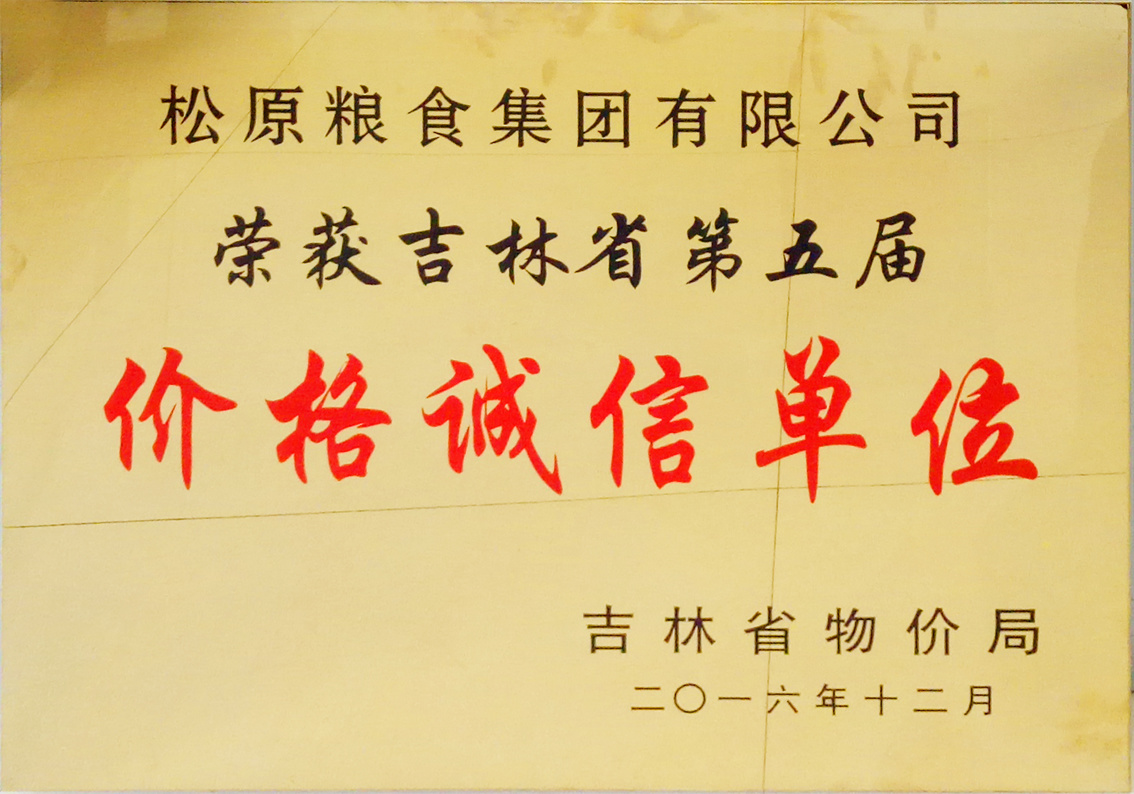 松原粮食集团有限公司
荣获吉林省第五届
价格诚信单位
吉林省物价局
二〇一六年十二月